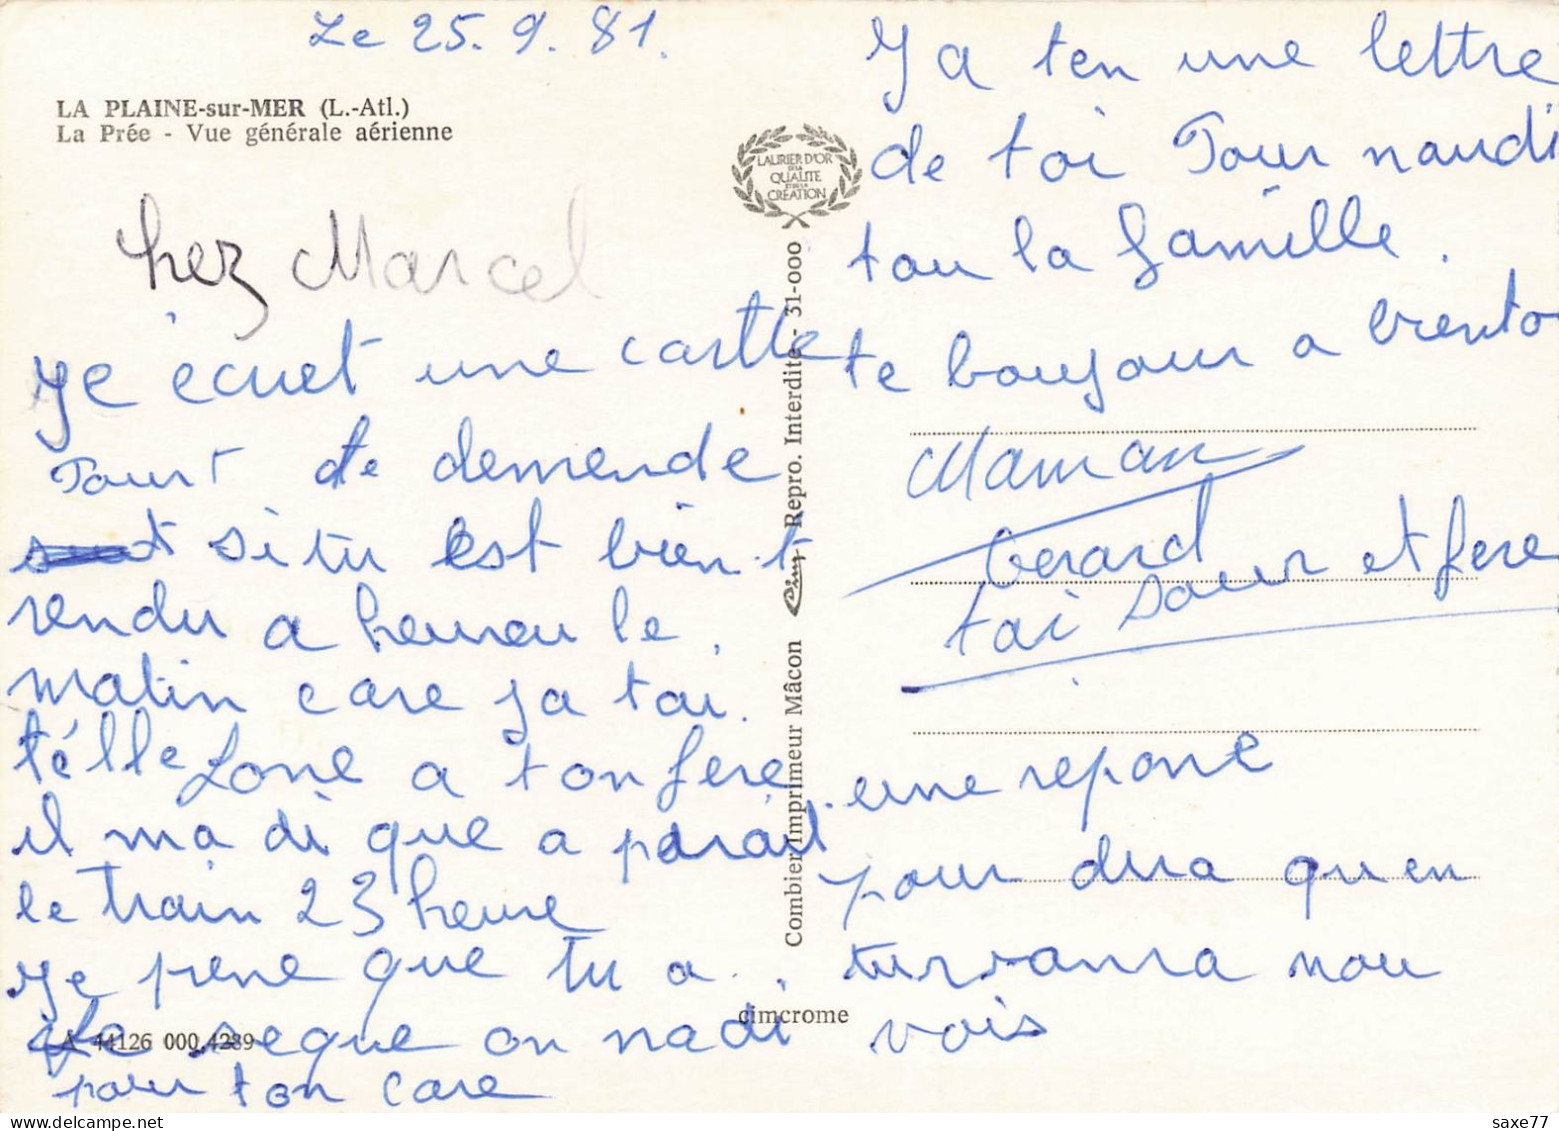 Le 25.9.81.
LA PLAINE-sur-MER (L.-Atl.)
La Prée - Vue générale aérienne
chez Marcel
Je écriet une castte
Pourt te demende
si tu est bien t
rendu a heureu le
matin care ja tai
télle fone a ton fere
il ma di que a parait
le train 23 heure
Je pene que tu a
seque on na di
pour ton care
A 44126 000.4289
LAURIER D'OR
DE LA
QUALITE
ET DE LA
CREATION
Combier Imprimeur Mâcon
Repro. Interdite - 31-000
cimcrome
Ja ten une lettre
de toi Pour naudi
tou la famille.
te boujour a biento
Maman
Gerard
tai sour et fere
une repone
pour dira quen
tu vanra nou
vois
saxe77